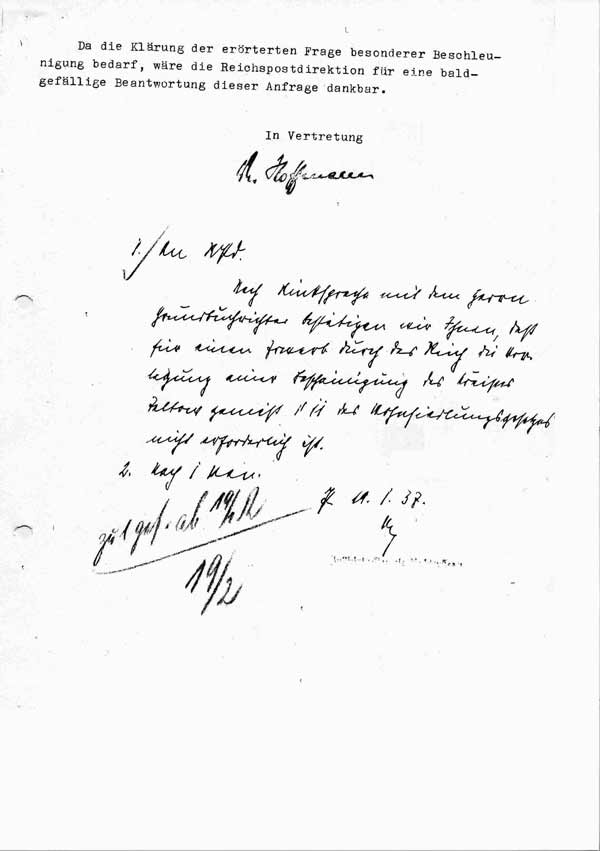 Da die Klärung der erörterten Frage besonderer Beschleu-
nigung bedarf, wäre die Reichspostdirektion für eine bald-
gefällige Beantwortung dieser Anfrage dankbar.
In Vertretung
Hoffmann
1./ An RPD.
Nach Rücksprache mit dem Herrn
Grundbuchrichter bestätigen wir Ihnen, daß
für einen Erwerb durch das Reich die Vor-
legung einer Bescheinigung des Kreises
Teltow gemäß § 11 des Wohnsiedlungsgesetzes
nicht erforderlich ist.
2. Nach 1
zu 1 gef. ab 19/2
1. 37.
19/2